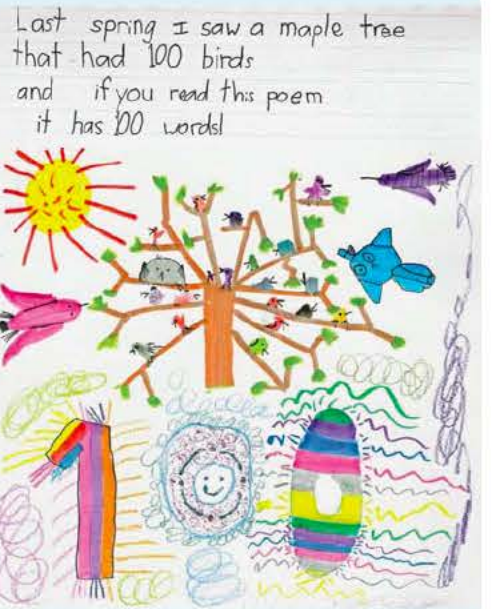 Last spring I saw a maple tree
that had 100 birds
and if you read this poem
it has 100 words!
100